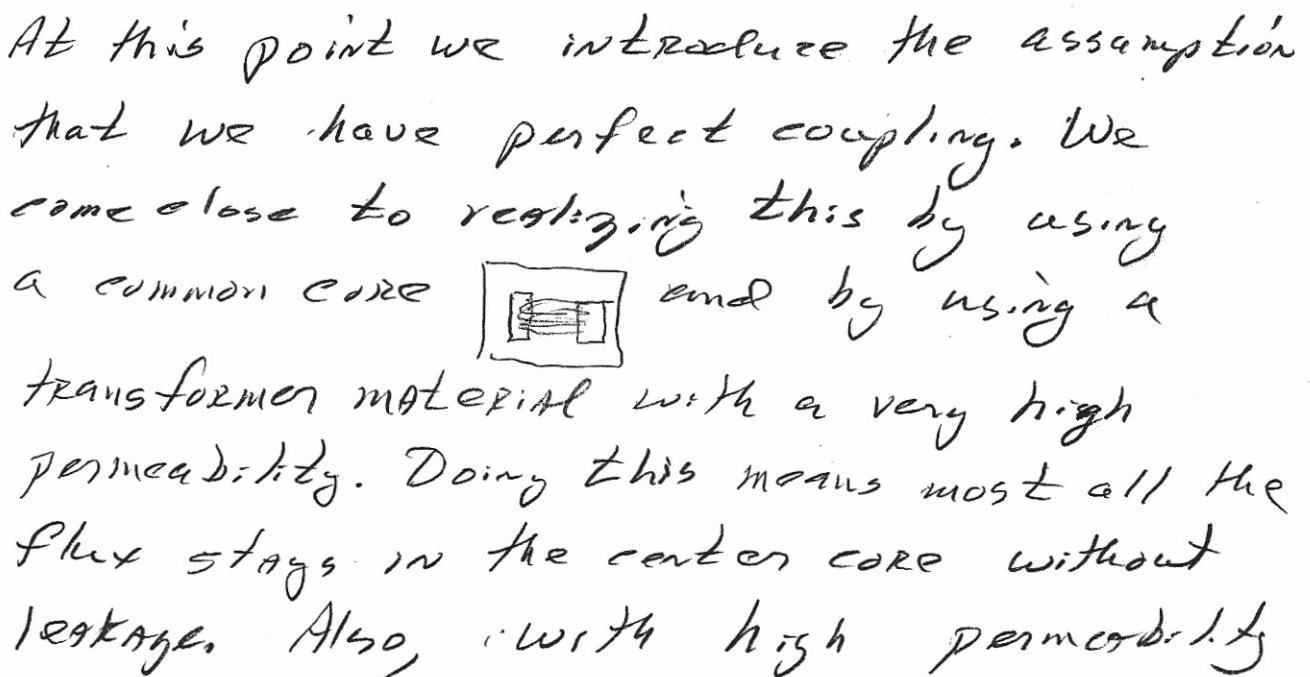 At this point we introduce the assumption
that we have perfect coupling. We
come close to realizing this by using
a common core and by using a
transformer material with a very high
permeability. Doing this means most all the
flux stays in the center core without
leakage. Also, with high permeability